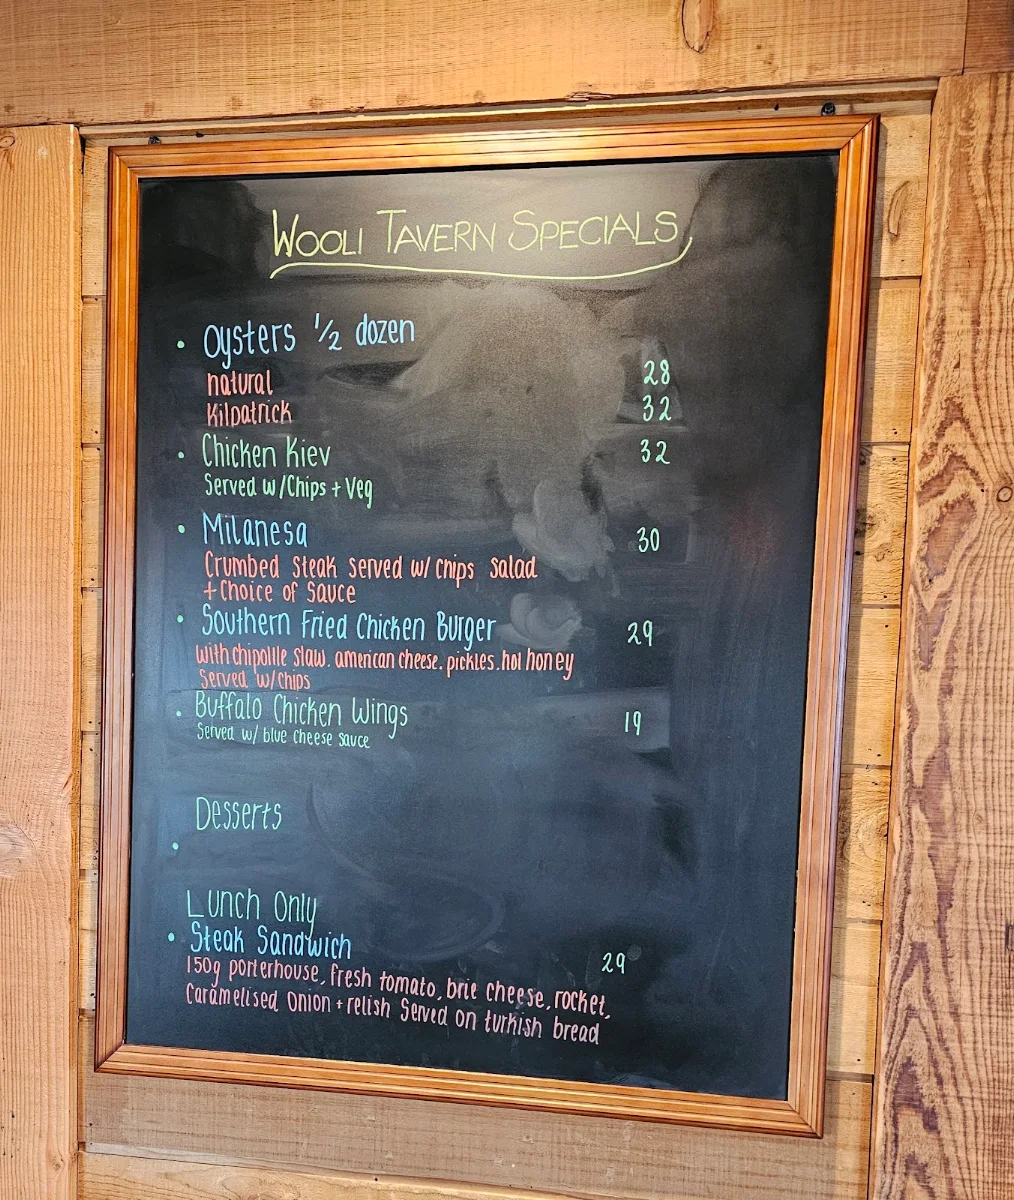 WOOLI TAVERN SPECIALS
• Oysters 1/2 dozen
natural 28
Kilpatrick 32
• Chicken Kiev 32
Served w/Chips + Veg
• Milanesa 30
Crumbed Steak served w/ chips salad
+ Choice of Sauce
• Southern Fried Chicken Burger 29
with chipotlle slaw. american cheese. pickles. hot honey
Served w/chips
• Buffalo Chicken Wings 19
Served w/ blue cheese sauce
Desserts
•
Lunch Only
• Steak Sandwich 29
150g porterhouse, fresh tomato, brie cheese, rocket,
Caramelised Onion + relish Served on turkish bread